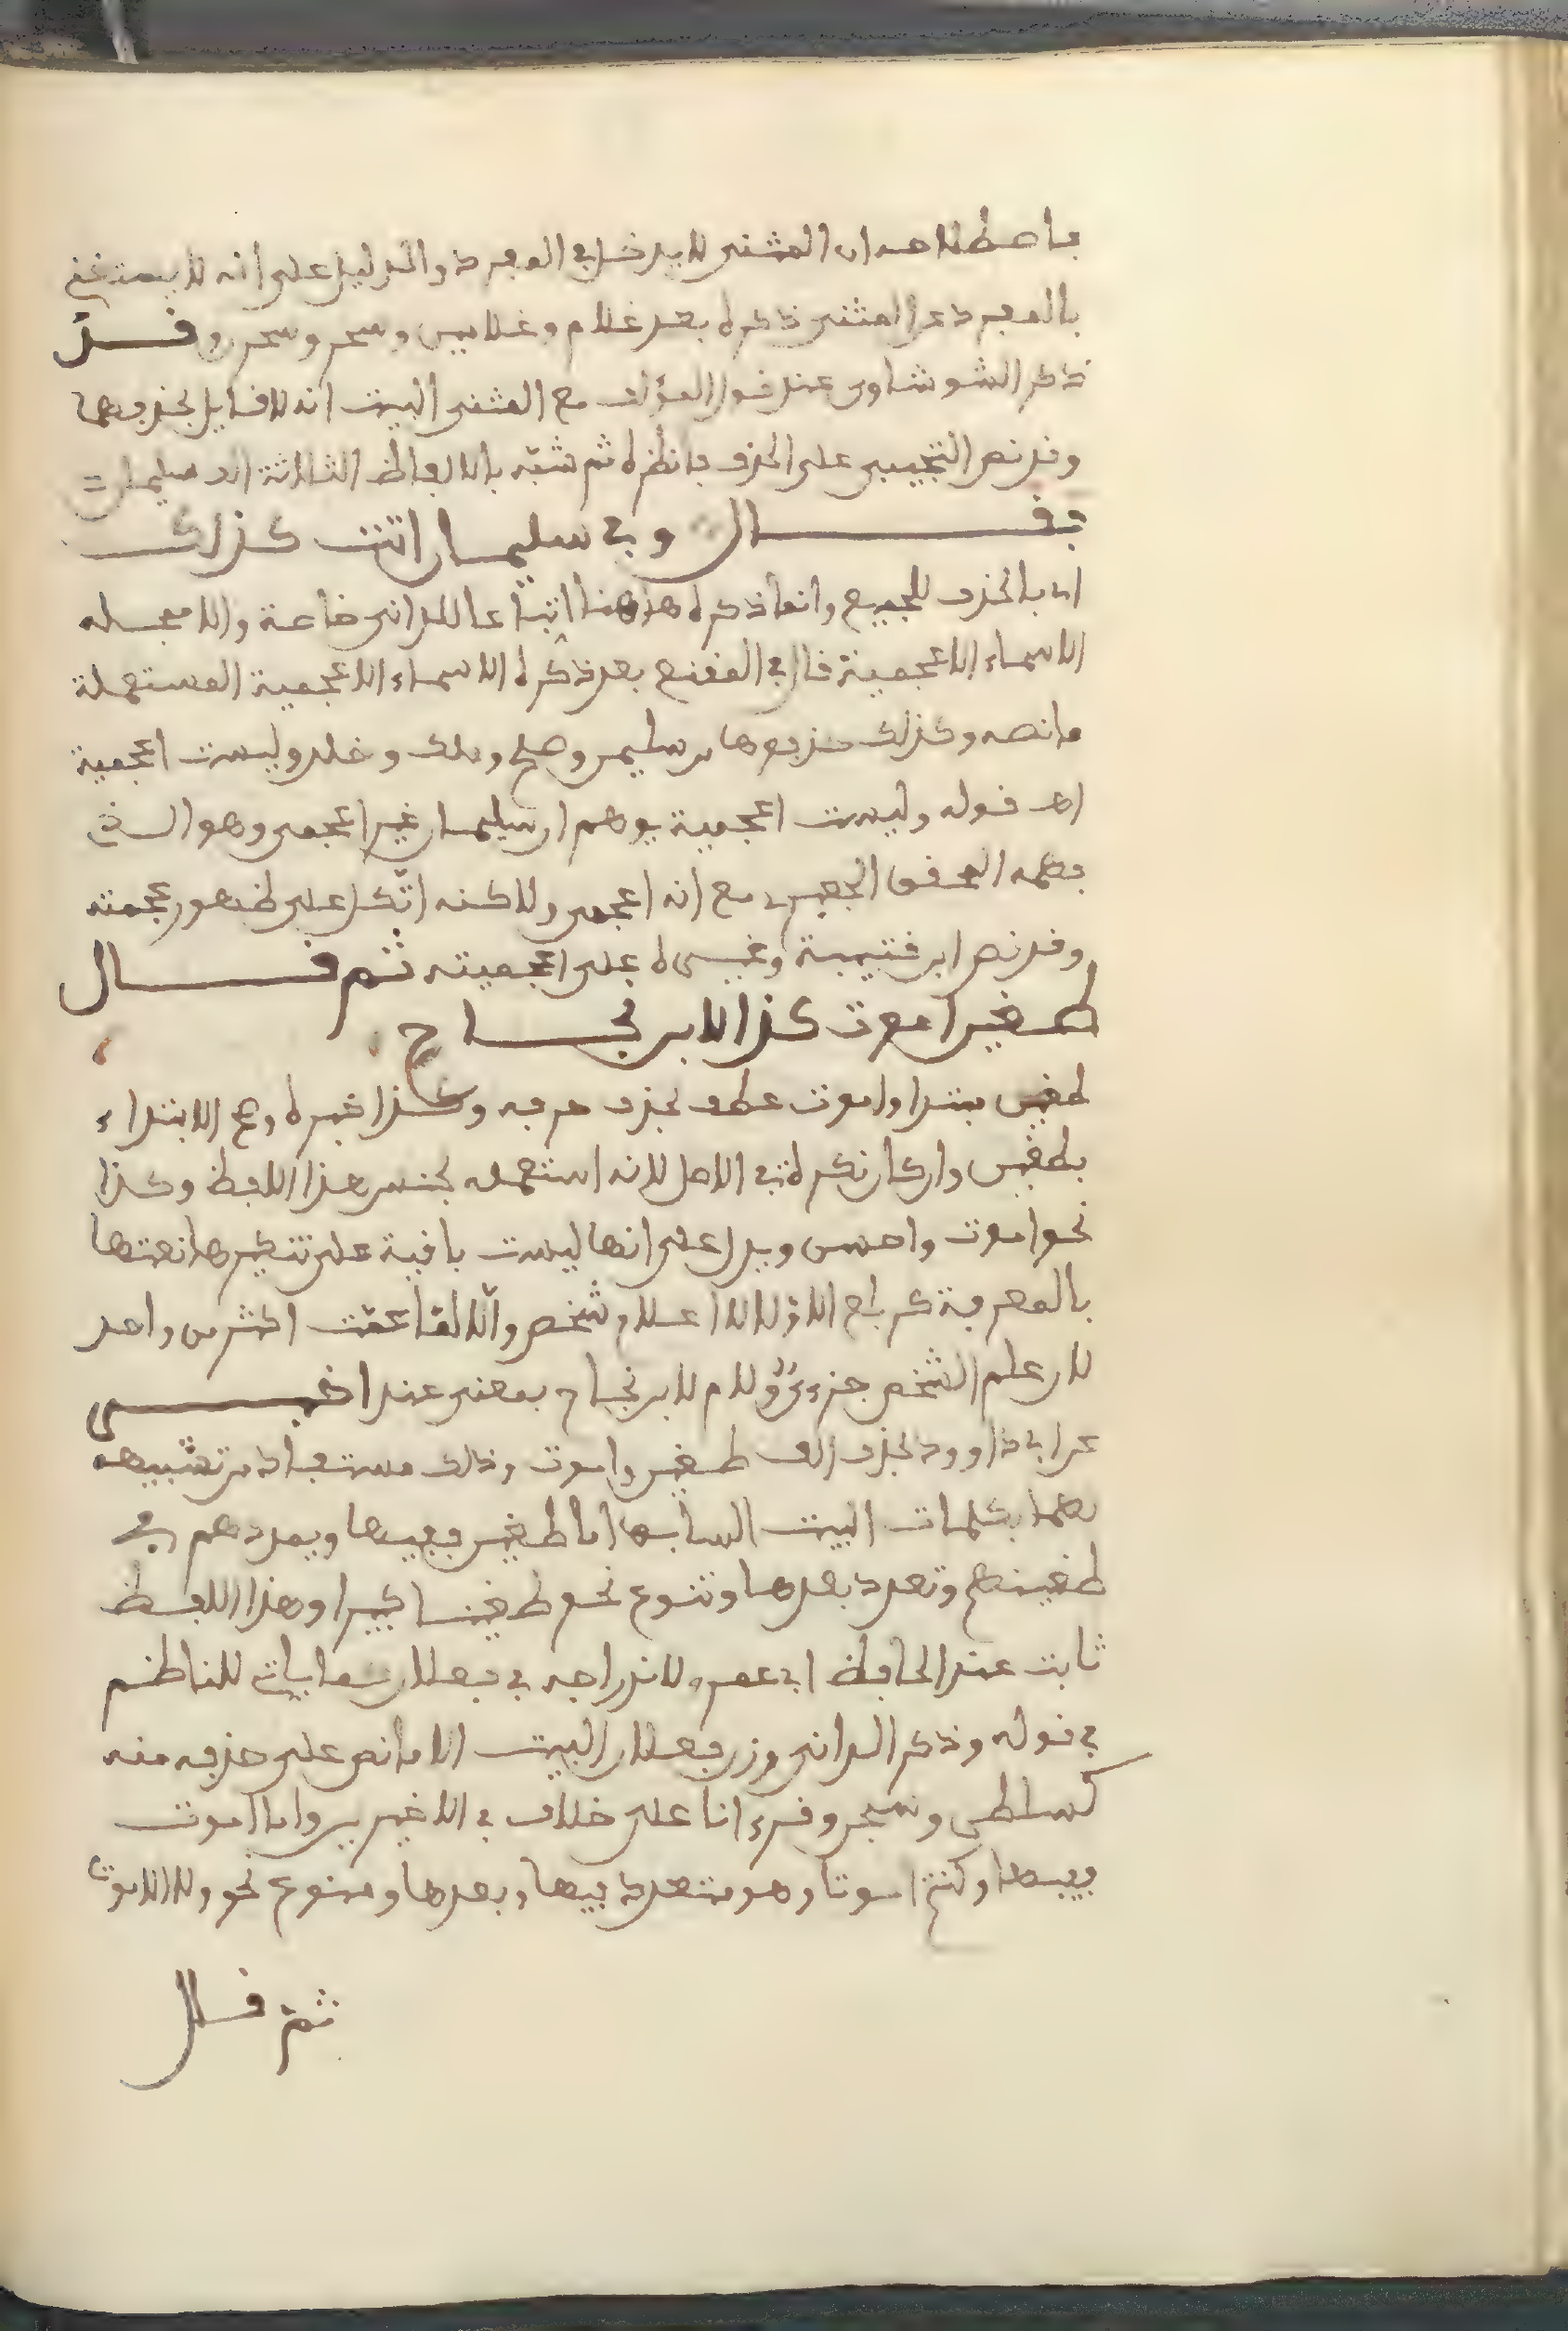 فاصطلاحه ان المثنى لا يدخل في المفرد والدليل على انه لا يستغنى
بالمفرد عن المثنى ذكره بعد غلام وغلامين وسحر وسحرن وقد
ذكر الشوشاوي عند قول المؤلف مع المثنى البيت انه لا قايل بحذفهما
وقد نص التجيبي على الحذف فانظره ثم شبه بالالفاظ الثلاثة الف سليمن
فقال وفي سليمان اتت كذلك
اي بالحذف للجميع وانما ذكره هاهنا اتباعا للداني خاصة والا فمحله
الاسماء الاعجمية قال في المقنع بعد ذكره الاسماء الاعجمية المستعملة
ما نصه وكذلك حذفوها من سليمن وصلح وملك وخلد وليست اعجمية
اه قوله وليست اعجمية يوهم ان سليمان غير اعجمي وهو الذي
فهمه المحقق الجعبري مع انه اعجمي ولاكنه اتكل على ظهور عجمته
وقد نص ابن قتيبة وغيره على اعجميته ثم قال
طغين اموت كذا لابن نجاح
طغين مبتدا واموت عطف بحذف حرفه وكذا خبره وصح الابتداء
بطغين وان كان نكرة في الاصل لانه استعمله بجنس هذا اللفظ وكذا
نحو اموت واحسن ويدل على انها ليست باقية على تنكيرها نعتها
بالمعرفة كرباع الاول لا اعلام شخص والا لما عمت اكثر من واحد
لان علم الشخص جزءي ولام لابن نجاح بمعنى عند اخبر
عن ابي داوود بحذف الف طغين واموت وذلك مستفاد من تشبيهه
لهما بكلمات البيت السابق اما طغين ففيها ويمدهم في
طغينهم وتعدد بعدها وتنوع نحو طغينا كبيرا وهذا اللفظ
ثابت عند الحافظ ابي عمرو لاندراجه في فعلان مما ياتي للناظم
في قوله وذكر الداني وزن فعلان البيت الا ما نص على حذفه منه
كسلطن وسبحن وقرءانا على خلاف في الاخيرين واما اموت
ففيها وكنتم اموتا وهو متعدد فيها وبعدها ومنوع نحو ولا الاموت
ثم قال